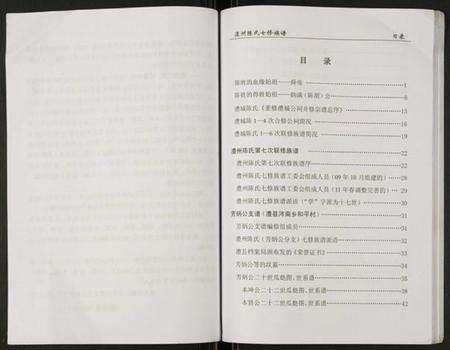 澧州陈氏七修族谱
目录
目 录
陈姓的血缘始祖——舜帝 1
陈姓的得姓始祖——妫满（陈胡）公 8
澧城陈氏《重修澧城公祠并修宗谱总序》 15
澧城陈1—6次合修公祠简况 19
澧城陈氏1—6次联修族谱简况 20
澧州陈氏第七次联修族谱 22
澧州陈氏第七次联修族谱序 22
澧州陈氏七修族谱工委会组成人员（09年10月组建的） 28
澧州陈氏七修族谱工委会组成人员（11年春调整完善的） 29
澧州陈氏七修族谱派语（“学”字派为十七世） 30
芳炳公支谱（澧县涔南乡和平村） 31
芳炳公支谱编修组成员 31
澧州陈氏（芳炳公分支）七修族谱派语 32
澧县档案局颁布发的《荣誉证书》 33
芳炳公等的坟墓 34
芳炳公二十世瓜瓞图、世系谱 35
本坤公二十二世瓜瓞图、世系谱 38
本贤公二十二世瓜瓞图、世系谱 42